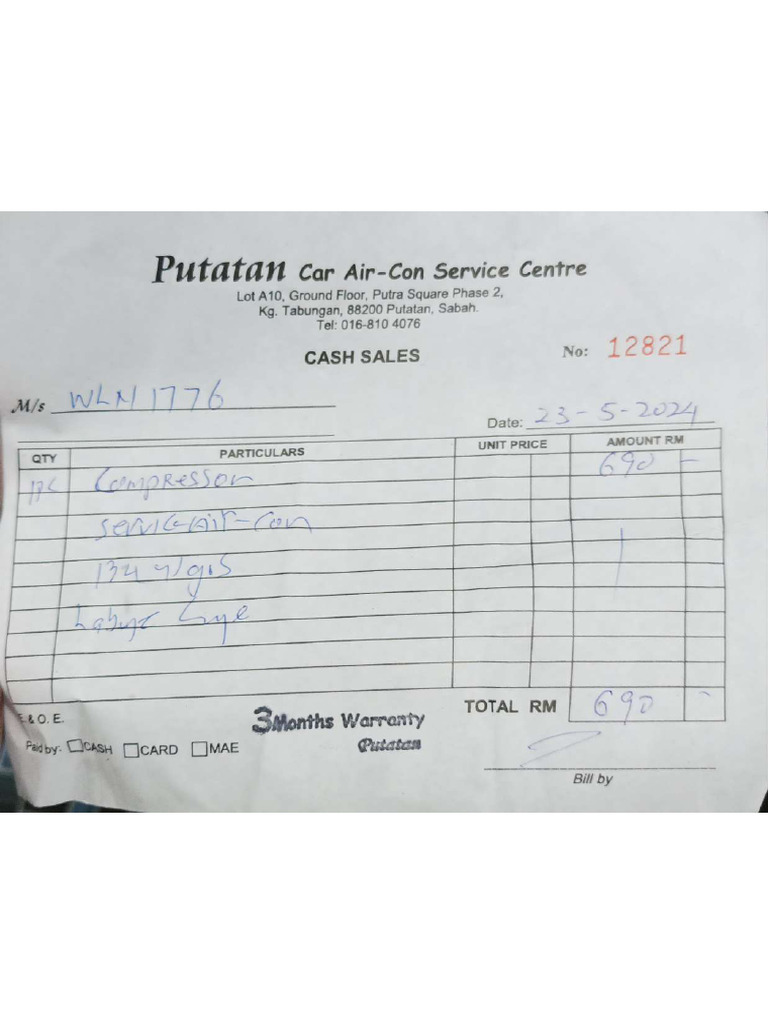 Putatan Car Air-Con Service Centre
Lot A10, Ground Floor, Putra Square Phase 2,
Kg. Tabungan, 88200 Putatan, Sabah.
Tel: 016-810 4076
CASH SALES
No: 12821
M/s WLN 1776
Date: 23-5-2024
QTY PARTICULARS UNIT PRICE AMOUNT RM
1PC Compressor 690 -
Service Air-Con
gas
TOTAL RM 690 -
E. & O. E.
3 Months Warranty
Putatan
Paid by:- CASH CARD MAE
Bill by